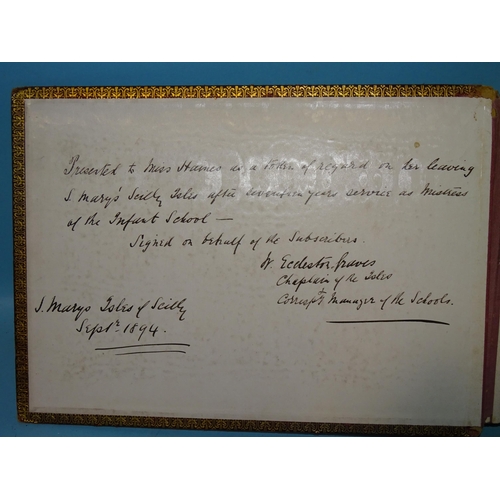 Presented to Miss Haines as a token of regard on her leaving
S. Mary's Scilly Isles after seventeen years service as Mistress
of the Infant School —
Signed on behalf of the Subscribers.
W. Eccleston. Graves
Chaplain of the Isles
Correspt Manager of the Schools.
S. Marys Isles of Scilly
Septr. 1894.